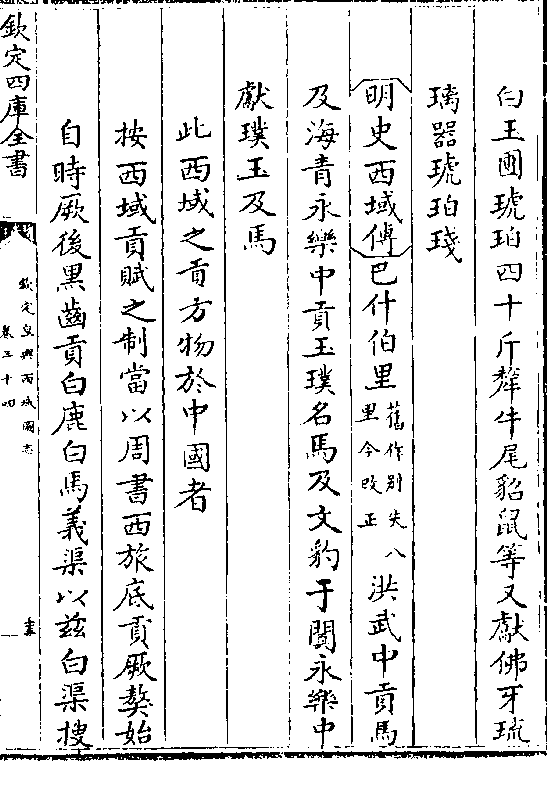 白玉圑琥珀四十斤犛牛尾貂鼠等又獻佛牙琉
璃器琥珀琖
明史西域傳巴什伯里舊作别失八里今改正洪武中貢馬
及海青永樂中貢玉璞名馬及文豹于闐永樂中
獻璞玉及馬
此西域之貢方物於中國者
按西域貢賦之制當以周書西旅底貢厥獒始
自時厥後黒齒貢白鹿白馬義渠以兹白渠搜
欽定四庫全書
欽定皇輿西域圖志
卷三十四